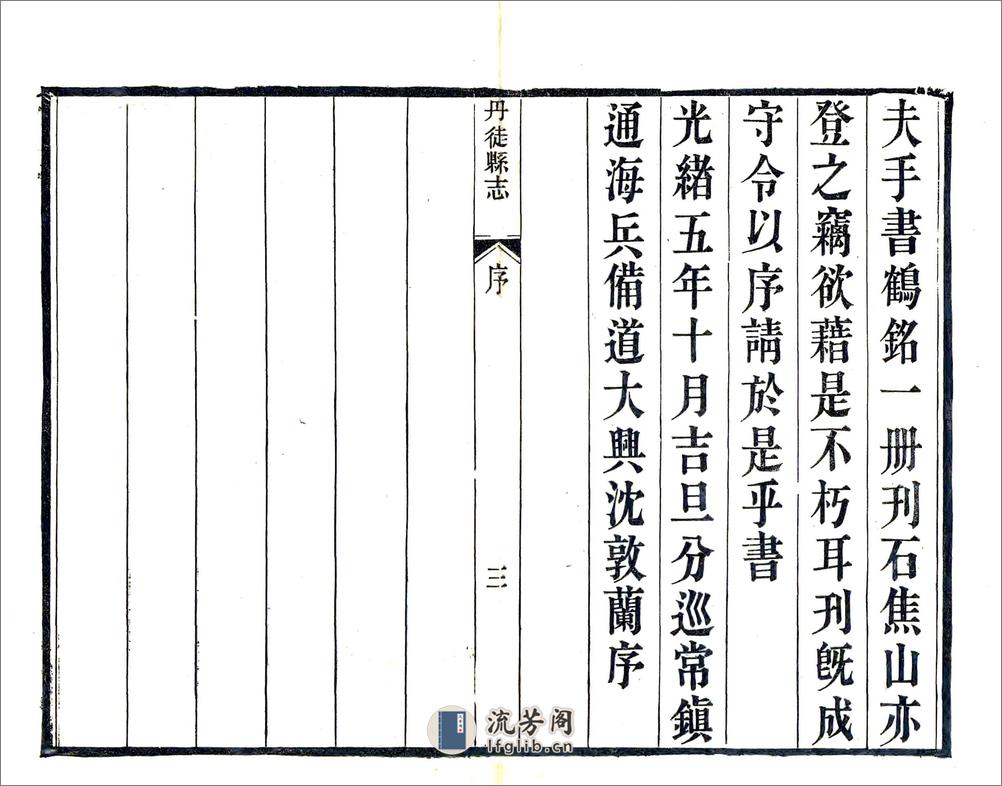 夫手書鶴銘一册刊石焦山亦
登之竊欲藉是不朽耳刊旣成
守令以序請於是乎書
光緒五年十月吉旦分巡常鎭
通海兵備道大興沈敦蘭序
丹徒縣志
序
三
流芳阁
lfglib.cn